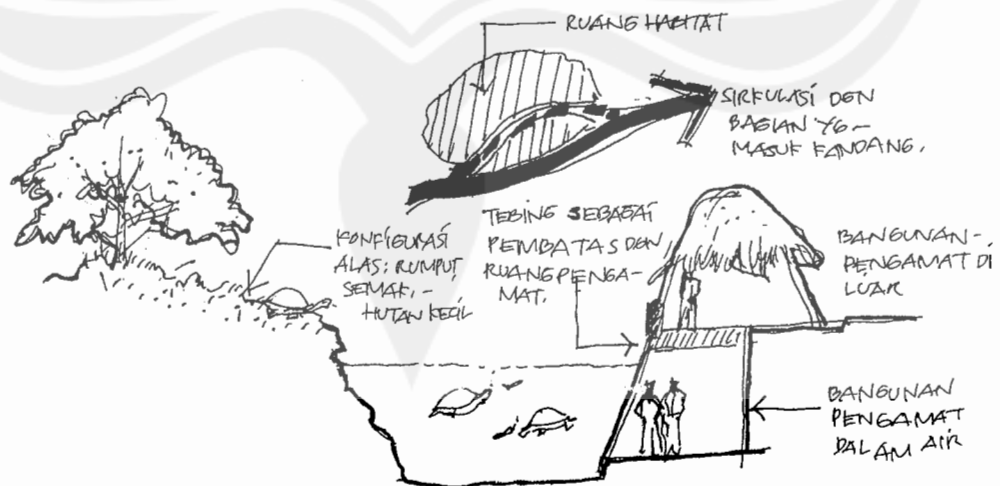 RUANG HABITAT
SIRKULASI DGN
BAGIAN YG -
MASUK KANDANG.
KONFIGURASI
ALAS: RUMPUT,
SEMAK, -
HUTAN KECIL
TEBING SEBAGAI
PEMBATAS DGN
RUANG PENGA-
MAT.
BANGUNAN -
PENGAMAT DI
LUAR
BANGUNAN
PENGAMAT
DALAM AIR